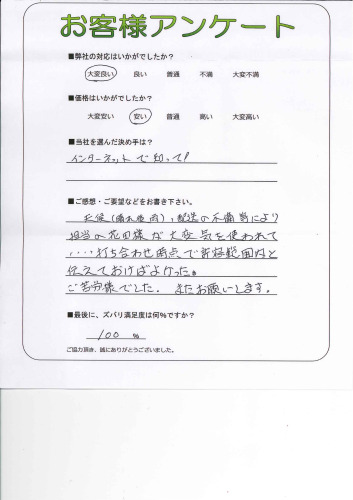 お客様アンケート
■弊社の対応はいかがでしたか？
大変良い 良い 普通 不満 大変不満
■価格はいかがでしたか？
大変安い 安い 普通 高い 大変高い
■当社を選んだ決め手は？
インターネットで知って！
■ご感想・ご要望などをお書き下さい。
天候（積水 雨）、配送の不備等により
担当の花田様が大変気を使われて
‥‥打ち合わせ時点で許容範囲内と
伝えておけばよかった。
ご苦労様でした。またお願いします。
■最後に、ズバリ満足度は何％ですか？
100 %
ご協力頂き、誠にありがとうございました。